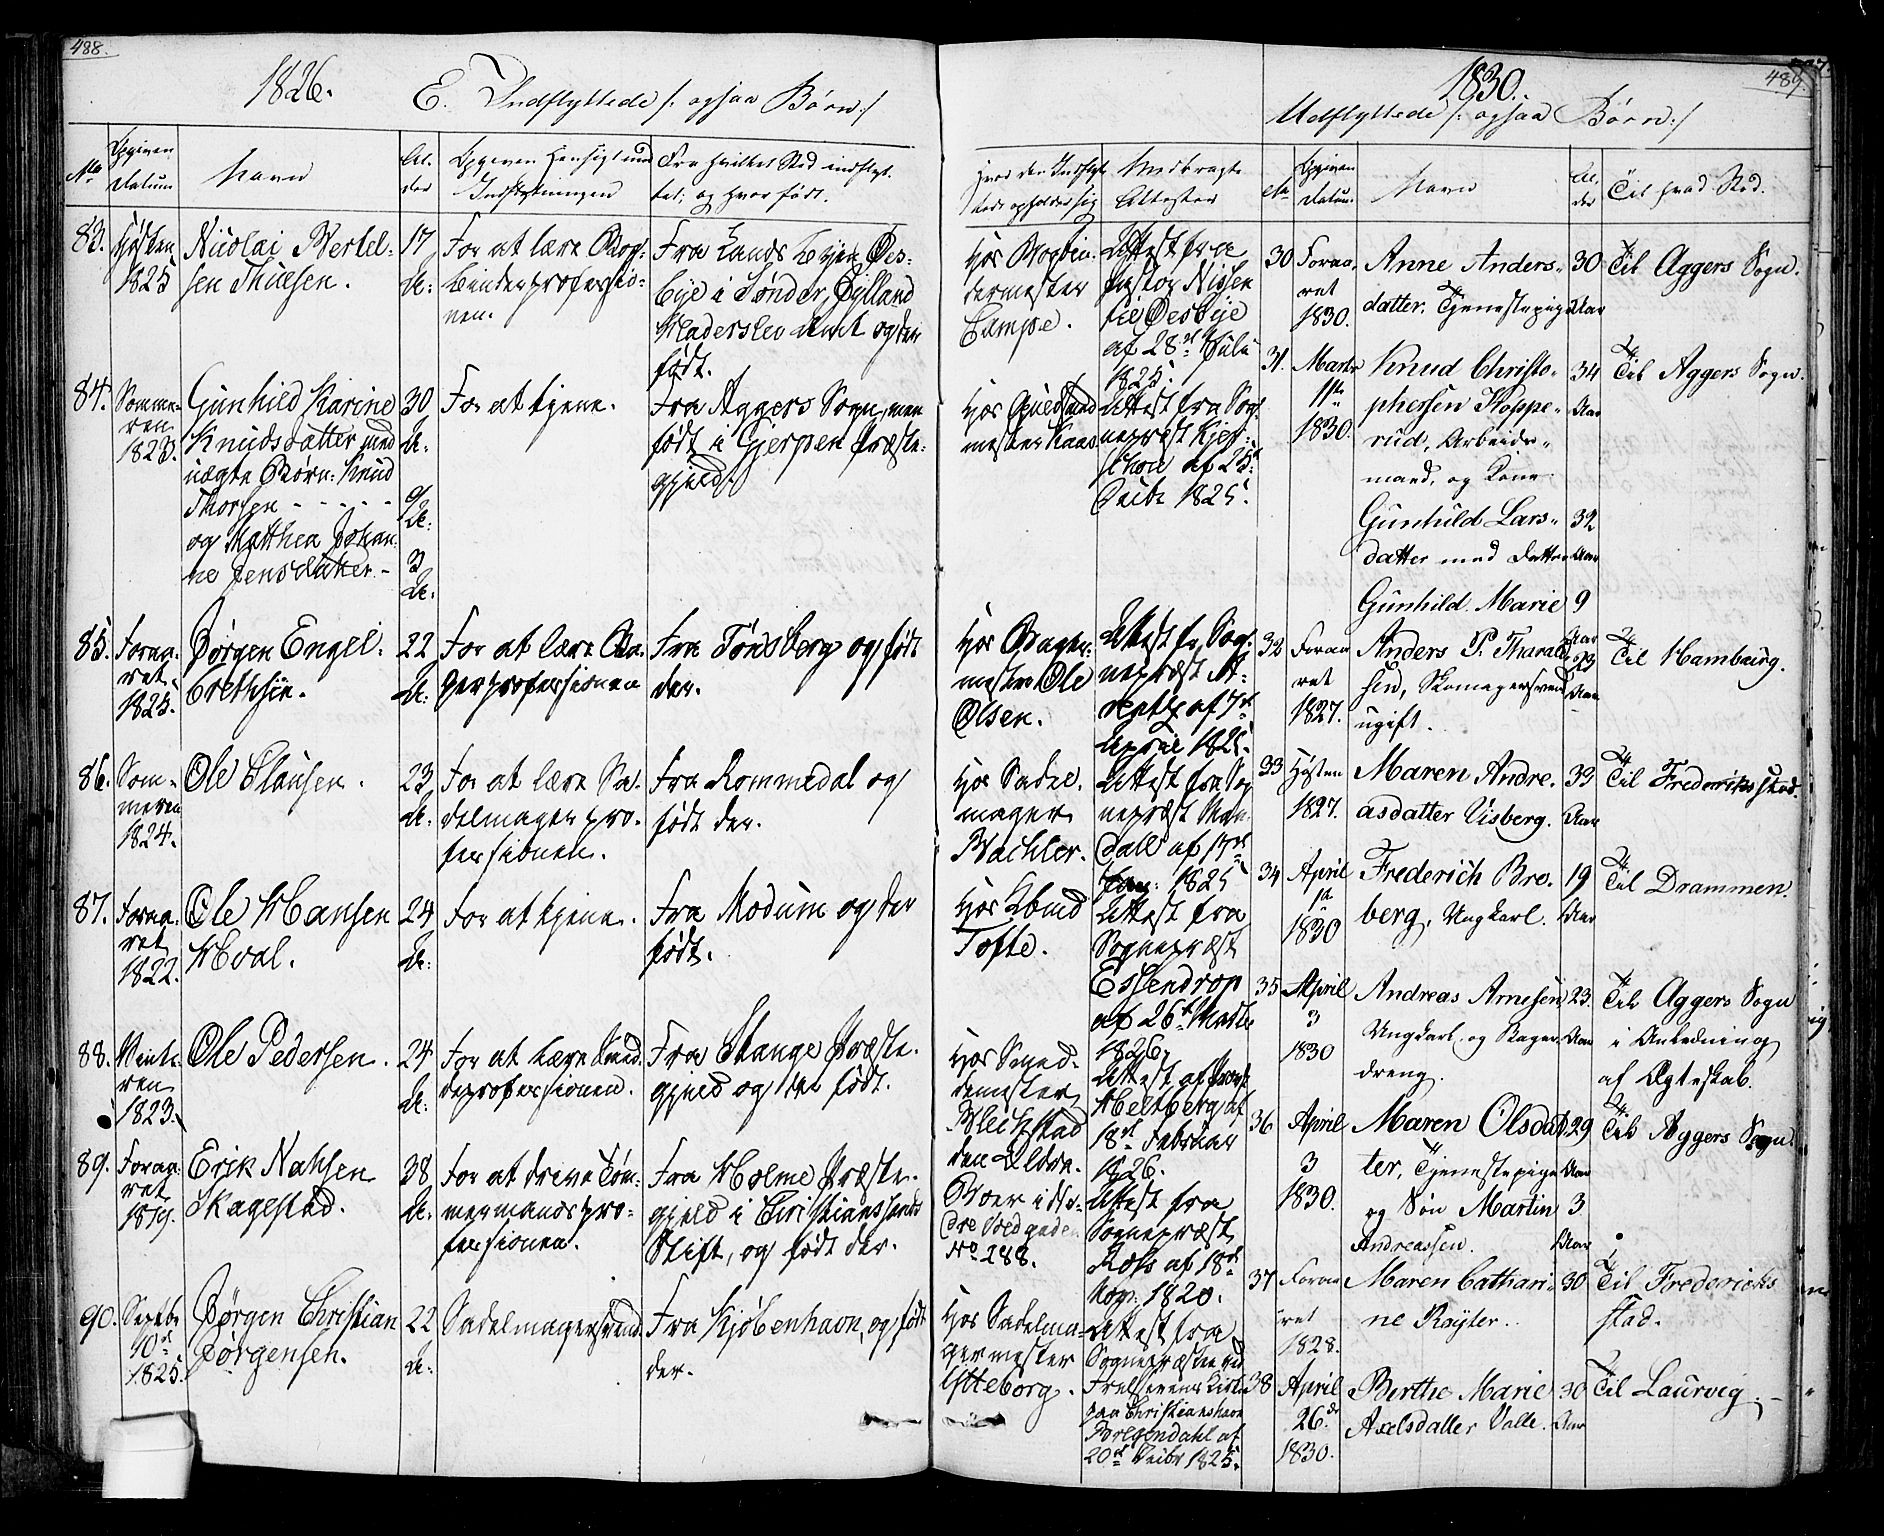 488.
1826.
E. Indflyttede /: ogsaa Børn :/
No
Opgiven
Datum
Navn
Al-
der
Opgiven Hensigt med
Indflytningen
Fra hvilket Sted indflyt-
tet, og hvor født.
Hvor den Indflyt-
tede opholder sig
Medbragte
Attester
83.
Høsten
1825
Nicolai Bertel-
sen Thuesen.
17
A:
For at lære Bog-
binderprofessio-
nen.
Fra Landsbyen Øes-
bye i Tønder, Jylland
Haderslev Amt og der
født.
Hos Bogbin-
dermester
Campe.
Attest fra
Pastor Nissen
til Øesbye
af 28de Juli
1825.
84.
Somme-
ren
1823.
Gunhild Karine
Knudsdatter med
uægte Børn: Knud
Thorsen - - - - -
og Matthea Johan-
ne Jensdatter -
30
A:
9
A:
3
A:
For at tjene.
Fra Aggers Sogn, men
født i Gjerpen Præste-
gjeld.
Hos
mester Kaas
Attest fra Sog-
nepræst
af 25
1825.
85.
Foraa-
ret
1825.
Jørgen Engel-
brethsen.
22
A:
For at lære Ba-
gerprofessionen
Fra Tønsberg og født
der.
Hos Bager-
mester Ole
Olsen.
Attest fr Sog-
nepræst
af 7de
April 1825.
86.
Som-
meren
1824.
Ole Clausen.
23
A:
For at lære Sa-
delmagerpro-
fessionen.
Fra Rommedal og
født der.
Hos Sadel-
mager
Bachler.
Attest fra Sog-
nepræst
af 17de
Jan: 1825
87.
Foraa-
ret
1822.
Ole Hansen
Hval.
24
A:
For at tjene.
Fra Modum og der
født.
Hos
Tofte.
Attest fra
Sognepræst
Essendrop
af 26de Marts
1826.
88.
Vinte-
ren
1823.
Ole Pedersen.
24
A:
For at lære Smed-
deprofessionen.
Fra Stange Præste-
gjeld og der født.
Hos Smed-
demester
Blichstad
den Ældre.
Attest af Provst
Heltberg af
18de Februar
1826.
89.
Foraa-
ret
1819.
Erik Nahsen
Skagestad.
38
A:
For at drive Tøm-
mermandspro-
fessionen.
Fra Holme Præste-
gjeld i Christianssands
Stift, og født der.
Boer i
No 288.
Attest fra
Sognepræst
Koss af 18de
1820.
90.
Septbr
10de
1825.
Jørgen Christian
Jørgensen.
22
A:
Sadelmagersvend.
Fra Kjøbenhavn, og født
der.
Hos Sadelma-
germester
Ytteborg.
Attest fra
Sognepræsten ved
Frelserens Kirke
paa Christianshavn
af
20de 1825.
489.
1830.
Udflyttede /: ogsaa Børn :/
No
Opgiven
Datum.
Navn
Al-
der
Til hvad Sted.
30
Foraa-
ret
1830.
Anne Anders-
datter. Tjenestepige
30
Aar
Til Aggers Sogn.
31.
Marts
1ste
1830.
Knud Christo-
phersen Hoppe-
rud, Arbeids-
mand, og Kone
Gunhild Lars-
datter med Datter
Gunhild Marie
34
Aar
32
Aar
9
Aar
Til Aggers Sogn.
32
Foraa
ret
1827.
Anders P. Tharald-
sen, Skomagersvend
ugift.
23
Aar
Til Hamburg.
33
Høsten
1827.
Maren Andre-
asdatter Visberg.
33
Aar
Til Frederiksstad.
34
April
1te
1830
Frederich Bre-
berg, Ungkarl.
19
Aar
Til Drammen.
35
April
3
1830
Andreas Arnesen
Ungkarl og Bager-
dreng.
23
Aar
Til Aggers Sogn
i Anledning
af Ægteskab.
36
April
3
1830.
Maren Olsdat-
ter, Tjenestepige
og Søn Martin
Andreassen.
29
Aar
3
Aar
Til Aggers Sogn.
37
Foraa
ret
1828.
Maren Cathari-
ne Røyter.
30
Til Fredericks
stad.
38
April
26de
1830.
Berthe Marie
Axelsdatter Valle.
30
Aar
Til Laurvig.